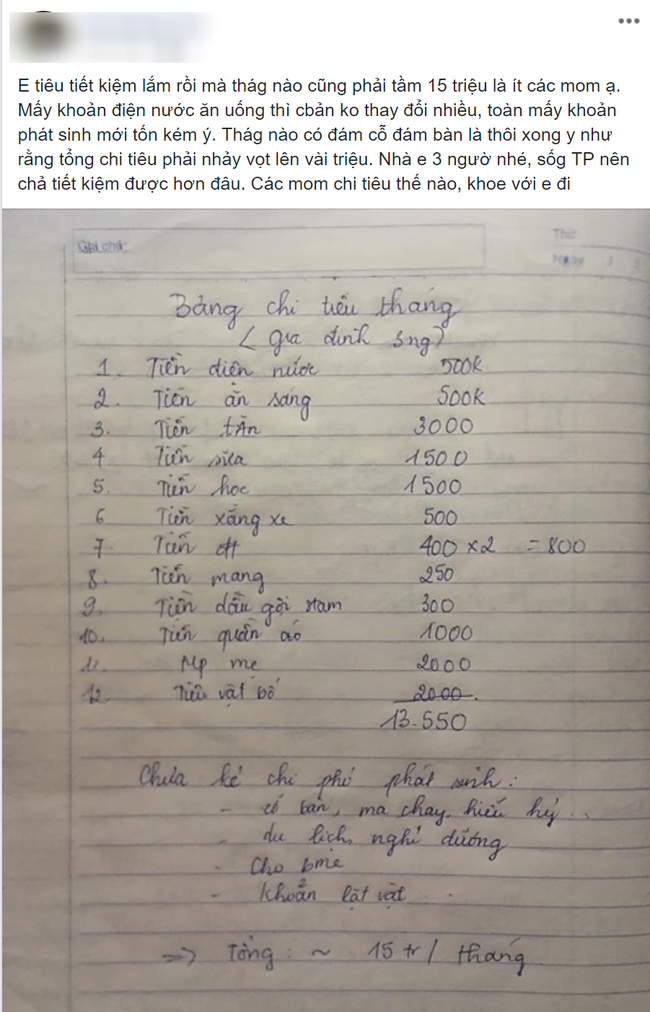 E tiêu tiết kiệm lắm rồi mà thág nào cũng phải tầm 15 triệu là ít các mom ạ.
Mấy khoản điện nước ăn uống thì cbản ko thay đổi nhiều, toàn mấy khoản
phát sinh mới tốn kém ý. Thág nào có đám cỗ đám bàn là thôi xong y như
rằng tổng chi tiêu phải nhảy vọt lên vài triệu. Nhà e 3 ngườ nhé, sốg TP nên
chả tiết kiệm được hơn đâu. Các mom chi tiêu thế nào, khoe với e đi
Ghi chú:
Thứ
Ngày
Bảng chi tiêu tháng
(gia đình 3ng)
1. Tiền điện nước 500k
2. Tiền ăn sáng 500k
3. Tiền tĂn 3000
4 Tiền sữa 1500
5. Tiền học 1500
6 Tiền xăng xe 500
7 Tiền đt 400 x2 = 800
8. Tiền mạng 250
9. Tiền dầu gội stam 300
10. Tiền quần áo 1000
11. Mp mẹ 2000
12. Tiêu vặt bố 2000
13.550
Chưa kể chi phí phát sinh:
- cỗ bàn, ma chay, hiếu hỷ...
- du lịch, nghỉ dưỡng
- Cho bmẹ
- Khoản lặt vặt
=> Tổng: ~ 15 tr / tháng